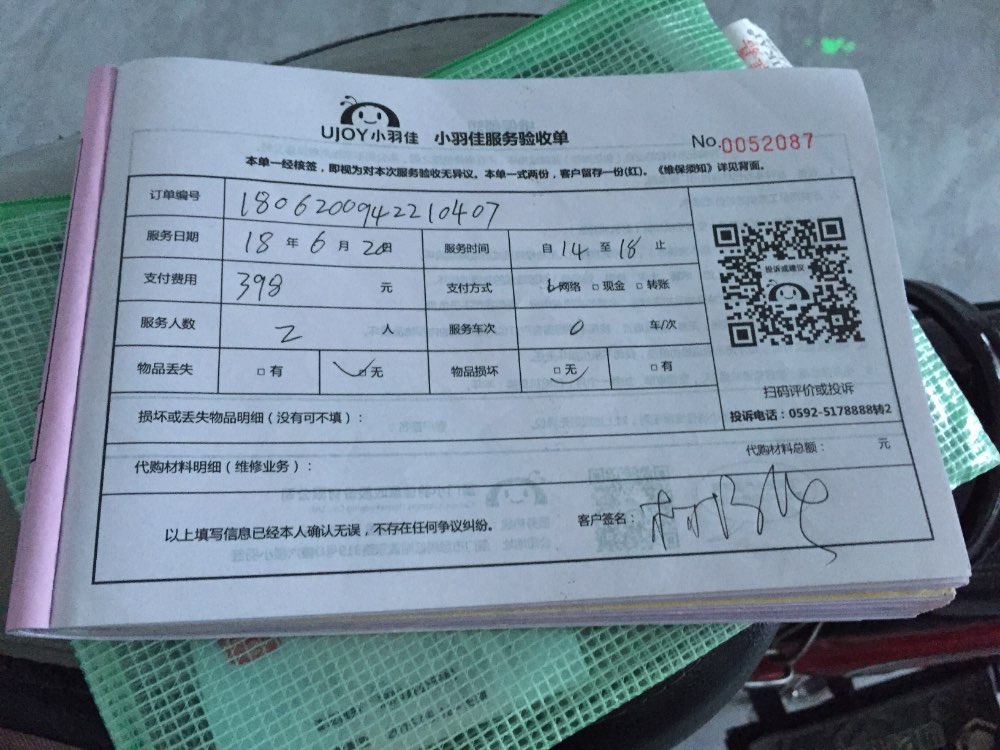 UJOY小羽佳 小羽佳服务验收单
No.0052087
本单一经核签，即视为对本次服务验收无异议。本单一式两份，客户留存一份(红)。《维保须知》详见背面。
订单编号 1806200942210407
服务日期 18 年 6 月 20 日 服务时间 自 14 至 18 止
支付费用 398 元 支付方式 网络 □ 现金 □ 转账
服务人数 2 人 服务车次 0 车/次
物品丢失 □ 有 □ 无 物品损坏 □ 无 □ 有
投诉或建议
扫码评价或投诉
投诉电话：0592-5178888转2
损坏或丢失物品明细（没有可不填）：
代购材料明细（维修业务）： 代购材料总额： 元
以上填写信息已经本人确认无误，不存在任何争议纠纷。 客户签名：